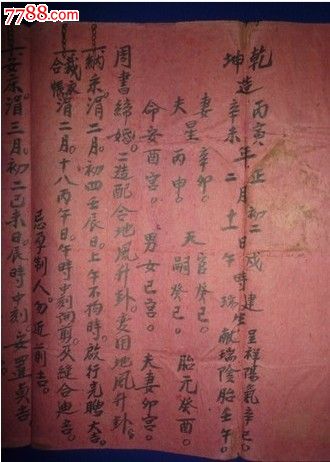 7788.com
乾造丙寅年正月初二戌建呈祥陽氣辛巳。
坤造辛未年二月十一日午時瑞生獻瑞陰胎壬午。
妻辛卯。 官癸巳。
夫星丙申。 天嗣癸巳。 胎元癸酉。
命安酉宮。 男女巳宮。 夫妻卯宮。
周書締婚。二造配合地風升卦。變困地風升卦。
納采涓二月。初四壬辰日。上午不拘時。啟行光瞻大吉。
裁衣合帳涓二月。十八丙午日。午時中刻開剪。夾縫合迪吉。
忌孕制人勿近前吉。
安床涓三月。初二己未日。辰時中刻。安置貞吉